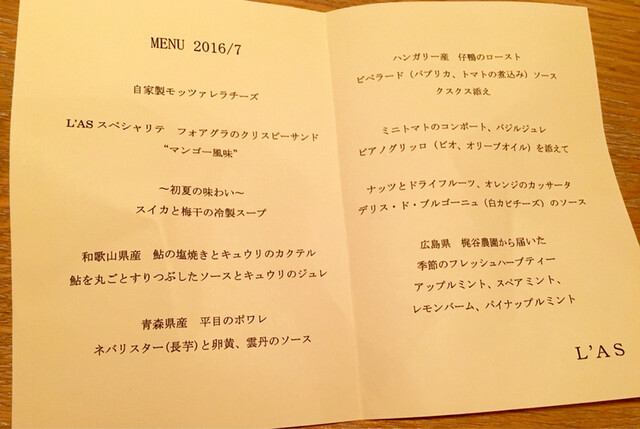 MENU 2016/7
自家製モッツァレラチーズ
L'AS スペシャリテ　フォアグラのクリスピーサンド
"マンゴー風味"
～初夏の味わい～
スイカと梅干の冷製スープ
和歌山県産　鮎の塩焼きとキュウリのカクテル
鮎を丸ごとすりつぶしたソースとキュウリのジュレ
青森県産　平目のポワレ
ネバリスター(長芋)と卵黄、雲丹のソース
ハンガリー産　仔鴨のロースト
ピペラード（パプリカ、トマトの煮込み）ソース
クスクス添え
ミニトマトのコンポート、バジルジュレ
ピアノグリッロ（ビオ、オリーブオイル）を添えて
ナッツとドライフルーツ、オレンジのカッサータ
デリス・ド・ブルゴーニュ（白カビチーズ）のソース
広島県　梶谷農園から届いた
季節のフレッシュハーブティー
アップルミント、スペアミント、
レモンバーム、パイナップルミント
L'AS